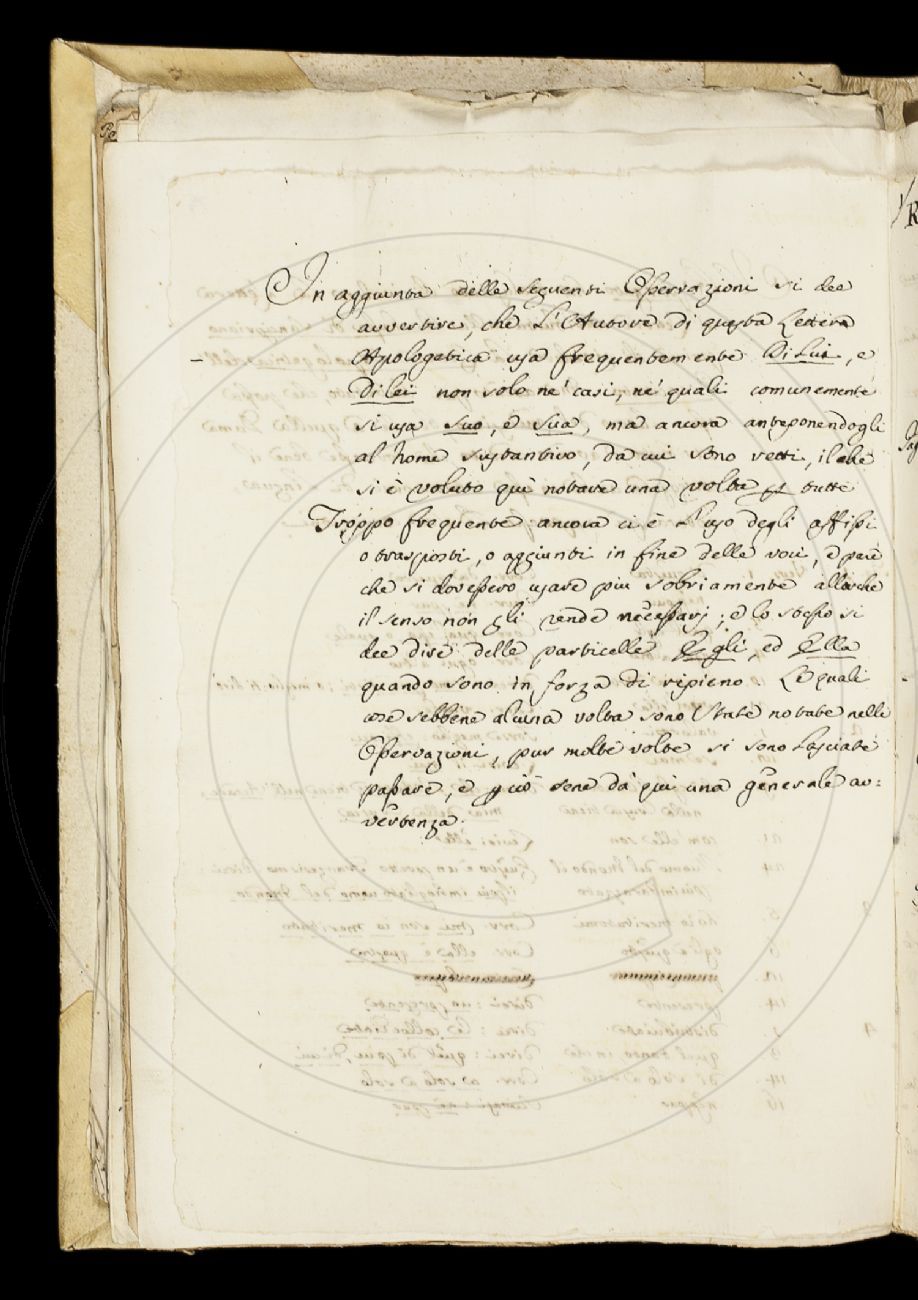 In aggiunta delle seguenti Osservazioni si dee
avvertire, che L'Autore di questa Lettera
Apologetica usa frequentemente Di Lui, e
Di lei non solo ne' casi, ne' quali comunemente
si usa suo, e sua, ma ancora anteponendogli
al nome sustantivo, da cui sono retti, il che
si è voluto quì notare una volta p tutte
Troppo frequente ancora ci è L'uso degli affissi
o trasposti, o aggiunti in fine delle voci, e pare
che si dovessero usare più sobriamente allorche
il senso non gli rende necessarj; e lo stesso si
dee dire delle particelle Egli, ed Ella
quando sono in forza di ripieno. Le quali
cose sebbene alcuna volta sono State notate nelle
Osservazioni, pur molte volte si sono Lasciate
passare, e p ciò sene dà quì una generale av=
vertenza.